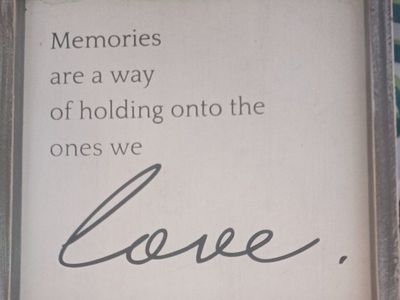 Memories
are a way
of holding onto the
ones we
love.